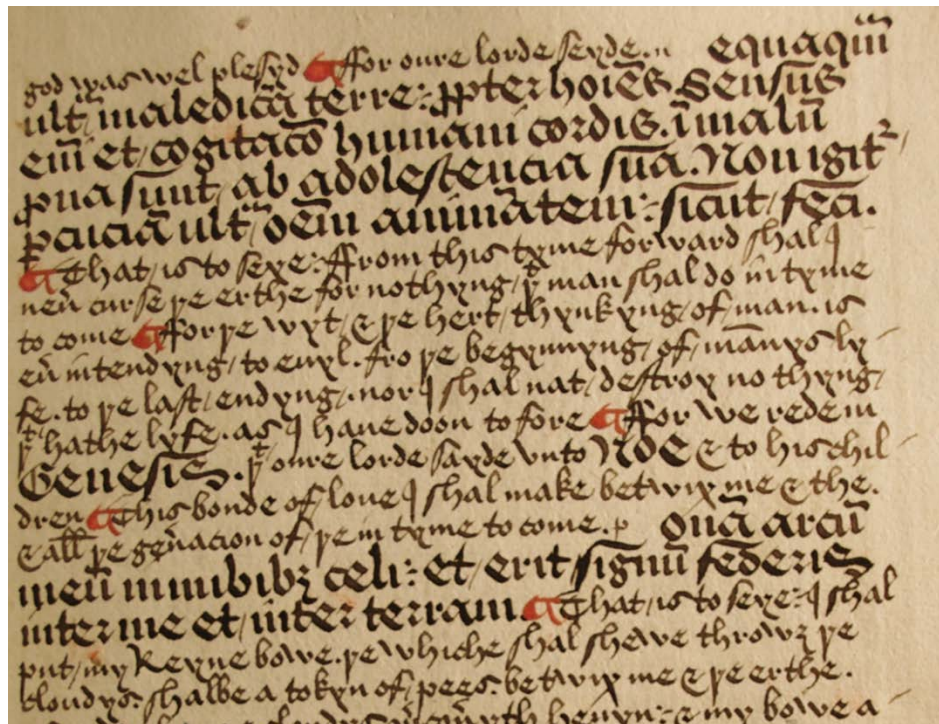 god was wel plesyd ¶ ffor oure lorde seyde. n equaquā
ultᵃ maledicā terre: ꝓpter hoiēs. Sensus
eī et cogitacō humani cordis. ī malū
ꝓna sunt, ab adolescencia sua. Non igitᵣ
ꝑcuciā ultᵃ oēm animātem: sicut feci.
¶ That is to seye: ffrom this tyme forward shal I
neū curse þe erthe for nothyng, þᵗ man shal do in tyme
to come ¶ ffor þe wyt, & þe hert, thynkyng, of man. is
eū intendyng, to euyl. fro þe begynnyng, of, mānys ly
fe. to þe last, endyng, nor I shal nat, destroy no thyng,
þᵗ hathe lyfe. as I haue doon to fore ¶ ffor we rede in
Genesis. þᵗ oure lorde sayde vnto Noe & to his chil
dren ¶ This bonde of loue I shal make betwix me & the.
& all þe geṅacion of, þe in tyme to come. p onā arcū
meū in nubibꝫ celi: et, erit signū federis
inter me et, inter terram. ¶ That is to seye: I shal
put, my Reyne bowe. þe whiche shal shewe throwȝ þe
cloudys: shalbe a tokyn of, pees. betwix me & þe erthe.
& my bowe a